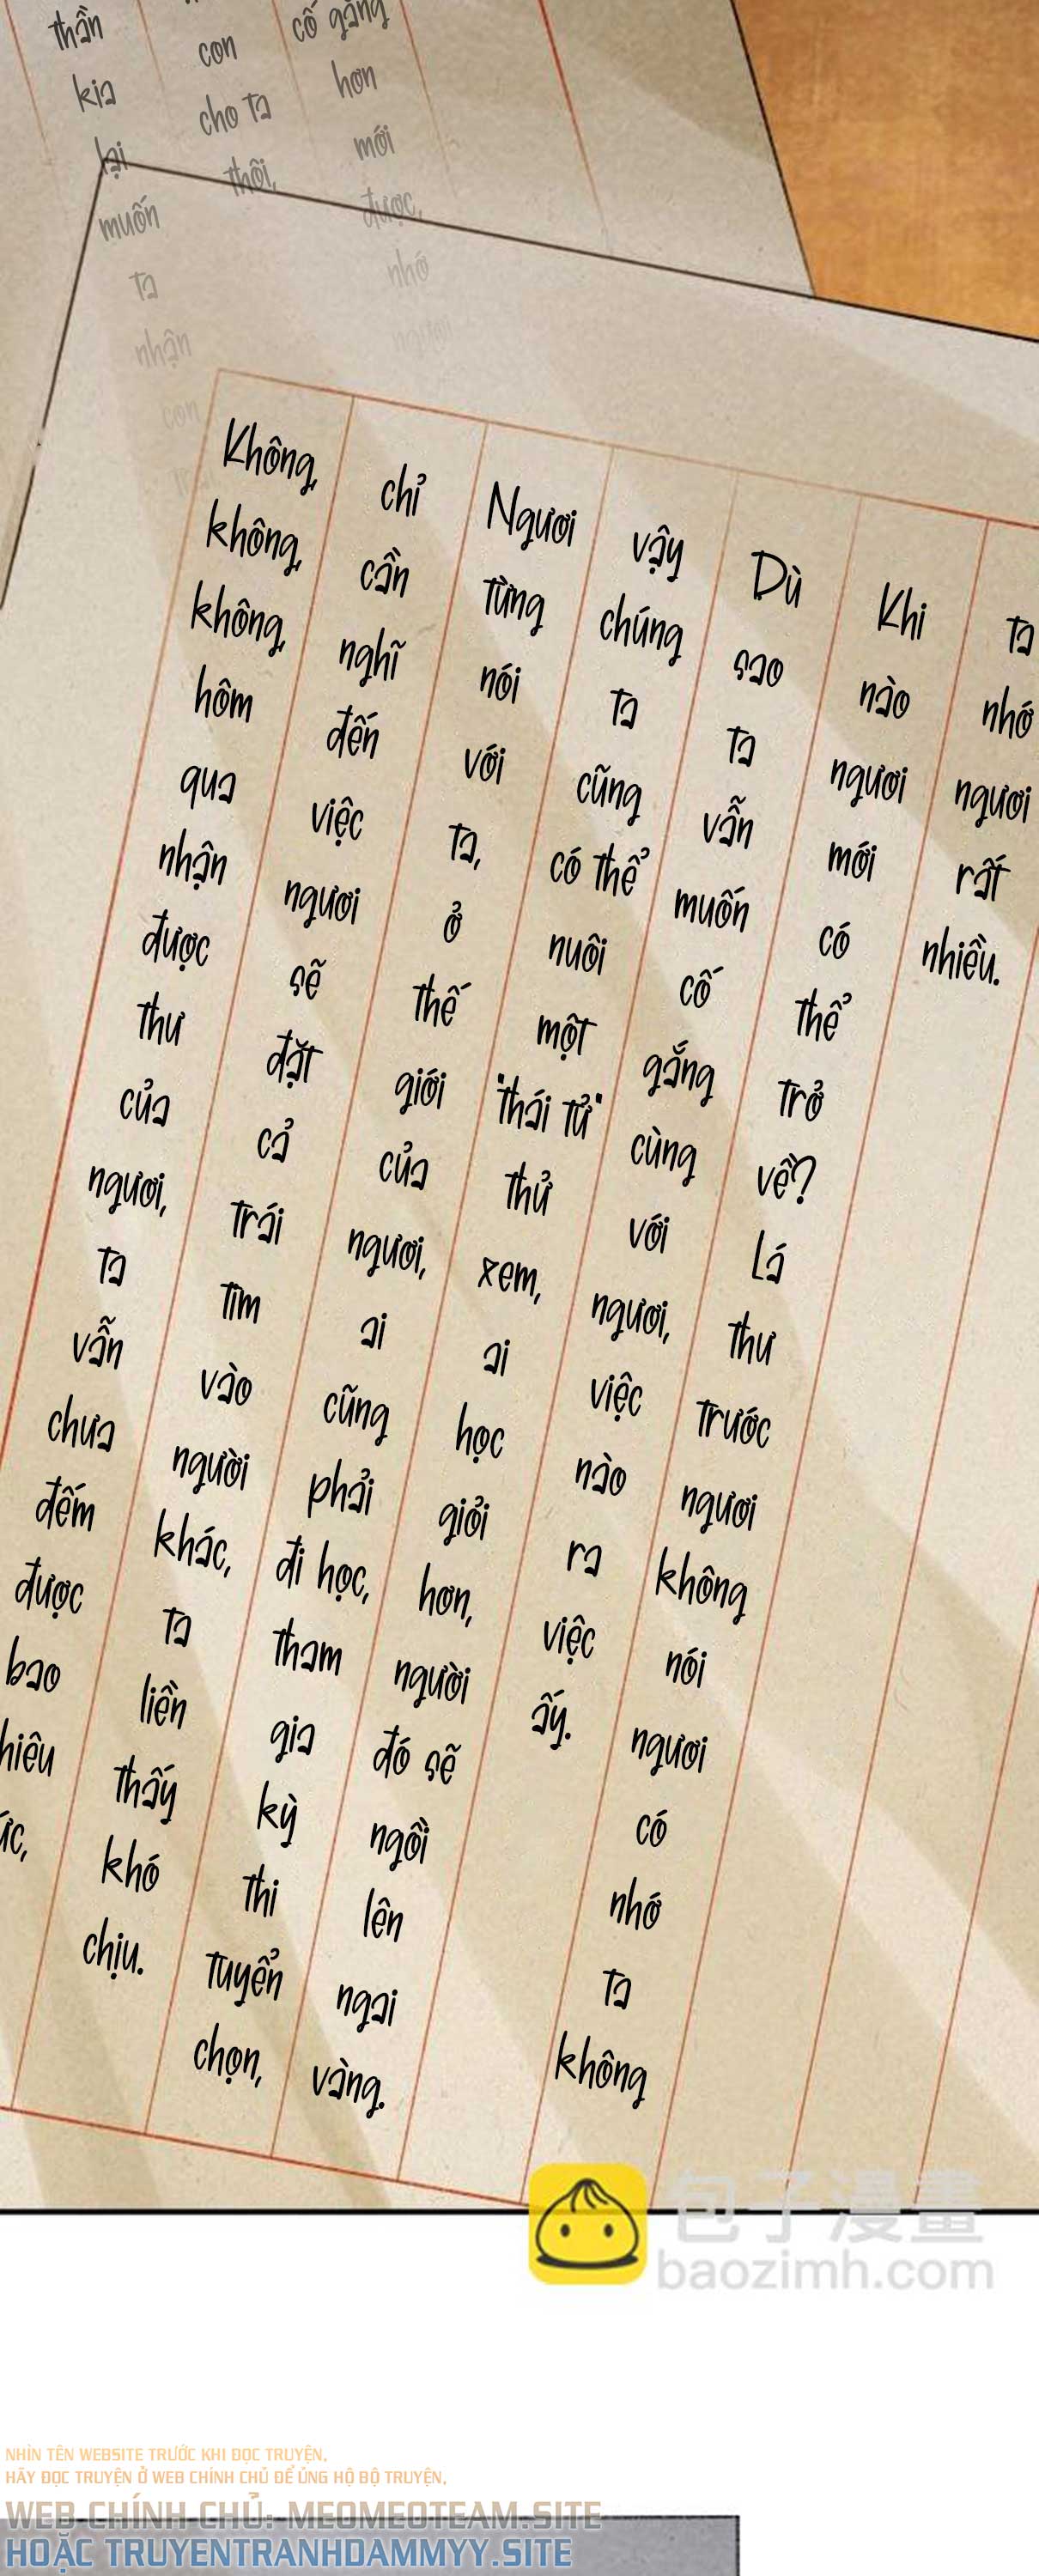 thần kia lại muốn ta nhận con
con cho ta thôi,
cố gắng hơn mới được, nhớ ngươi
Không, không, không, hôm qua nhận được thư của ngươi, ta vẫn chưa đếm được bao
chỉ cần nghĩ đến việc ngươi sẽ đặt cả trái tim vào người khác, ta liền thấy khó chịu.
Ngươi từng nói với ta, ở thế giới của ngươi, ai cũng phải đi học, tham gia kỳ thi tuyển chọn,
vậy chúng ta cũng có thể nuôi một "thái tử" thử xem, ai học giỏi hơn, người đó sẽ ngồi lên ngai vàng.
Dù sao ta vẫn muốn cố gắng cùng với ngươi, việc nào ra việc ấy.
Khi nào ngươi mới có thể trở về? Lá thư trước ngươi không nói ngươi có nhớ ta không
ta nhớ ngươi rất nhiều.
包子漫畫
baozimh.com
NHÌN TÊN WEBSITE TRƯỚC KHI ĐỌC TRUYỆN,
HÃY ĐỌC TRUYỆN Ở WEB CHÍNH CHỦ ĐỂ ỦNG HỘ BỘ TRUYỆN,
WEB CHÍNH CHỦ: MEOMEOTEAM.SITE
HOẶC TRUYENTRANHDAMMYY.SITE